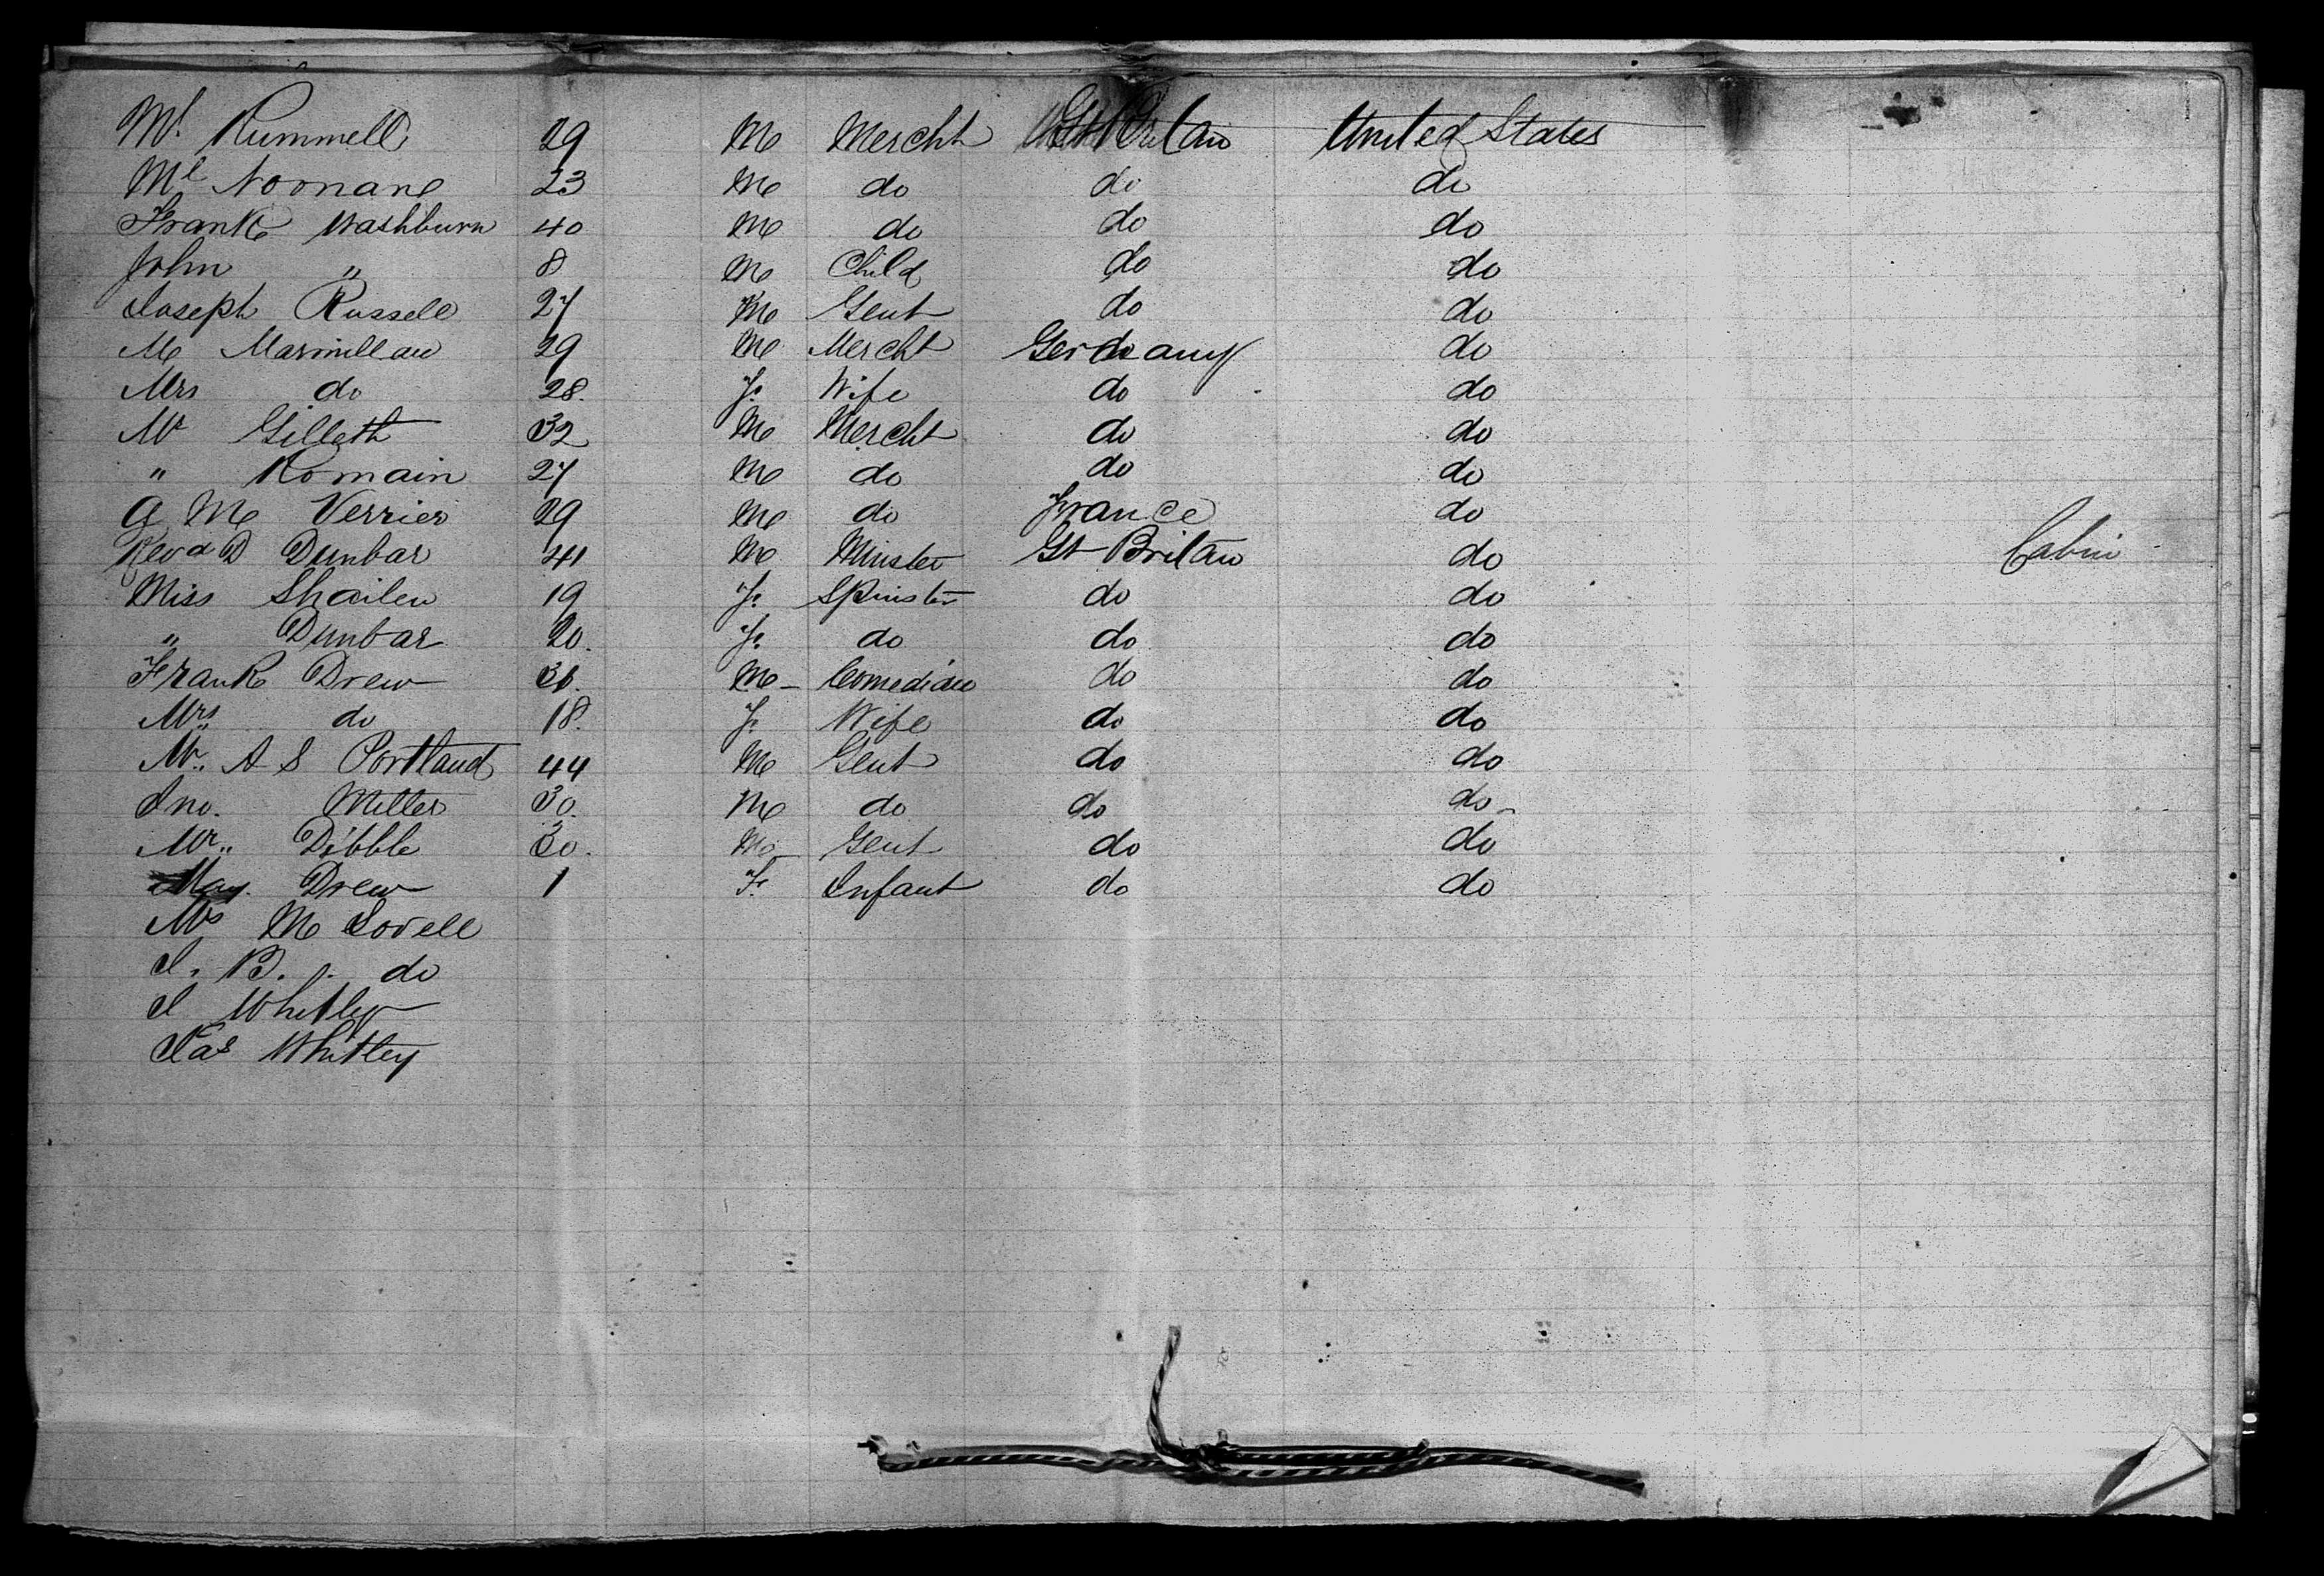 Mr Rummell 29 M Mercht Gt Britan United States
Mr Noonane 23 M do do do
Frank Washburn 40 M do do do
John " 8 M Child do do
Joseph Russell 27 M Gent do do
M 29 M Mercht Germany do
Mrs do 28. F. Wife do do
Mr Gilleth 32 M Mercht do do
" Romain 27 M do do do
A M Verrier 29 M do France do
Revd D Dunbar 41 M Minster Gt Britan do Cabin
Miss Shailer 19 F. Spinster do do
" Dunbar 20. F. do do do
Frank Drew M Comedian do do
Mrs do 18. F. Wife do do
Mr. A S Portland 44 M Gent do do
Jno. Miller 30. M do do do
Mr. Dibble 30. M Gent do do
May. Drew 1 F. Infant do do
Mr M Lovell
J. B. do
J Whitley
Jas Whitley